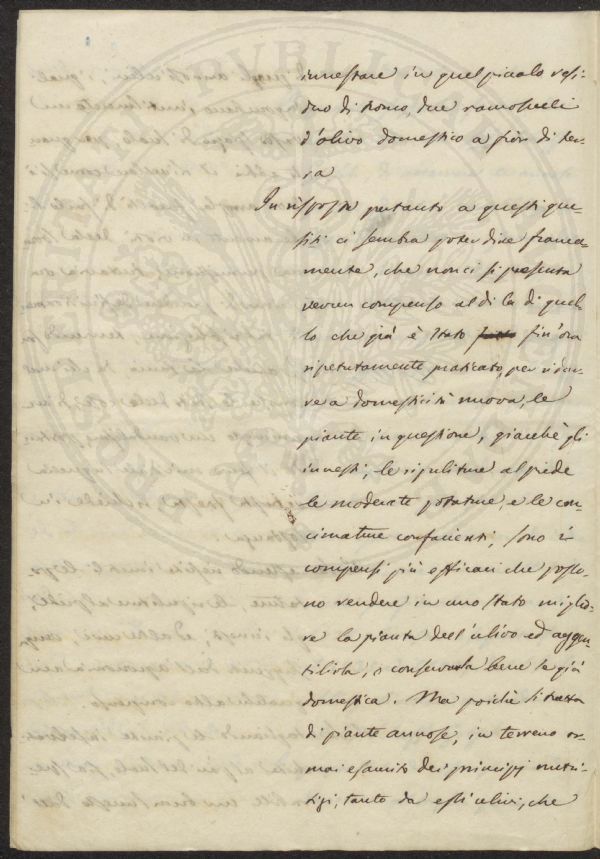 innestare in quel piccolo resi-
duo di tronco, due ramoscelli
d'olivo domestico a fior di ter-
ra
In risposta pertanto a questi que-
siti ci sembra poter dire franca-
mente, che non ci si presenta
verun compenso al di la di quel-
lo che già è stato fin'ora
ripetutamente praticato, per ridur-
re a domesticità nuova, le
piante in questione, giacchè gli
innesti, le ripuliture al piede
le moderate potature, e le con-
cimature confacienti, sono i
compensi più efficaci che posso-
no rendere in uno stato miglio-
re la pianta dell'ulivo ed aggen-
tilirla, e conservarla bene se già
domestica. Ma poichè si tratta
di piante annose, in terreno or-
mai esaurito dei principj nutri-
tivi, tanto da essi ulivi, che